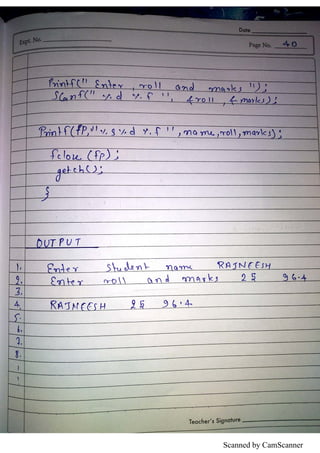 Date
Expt. No.
Page No. 40
Printf(" Enter roll and marks ");
Scanf(" %d %f ", &roll, &marks);
Printf(fp," %s %d %f ", name, roll, marks);
fclose (fp);
getch();
}
OUTPUT
1. Enter Student name RAJNEESH
2. Enter roll and marks 25 96.4
3.
4. RAJNEESH 25 96.4
5.
6.
7.
8.
Teacher's Signature
Scanned by CamScanner